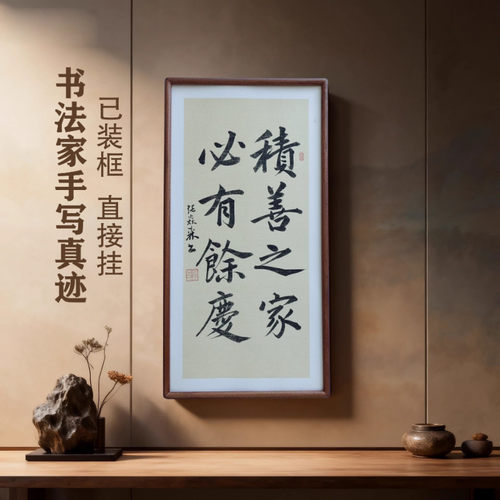 書法家手写真迹
已装框 直接挂
積善之家
必有餘慶